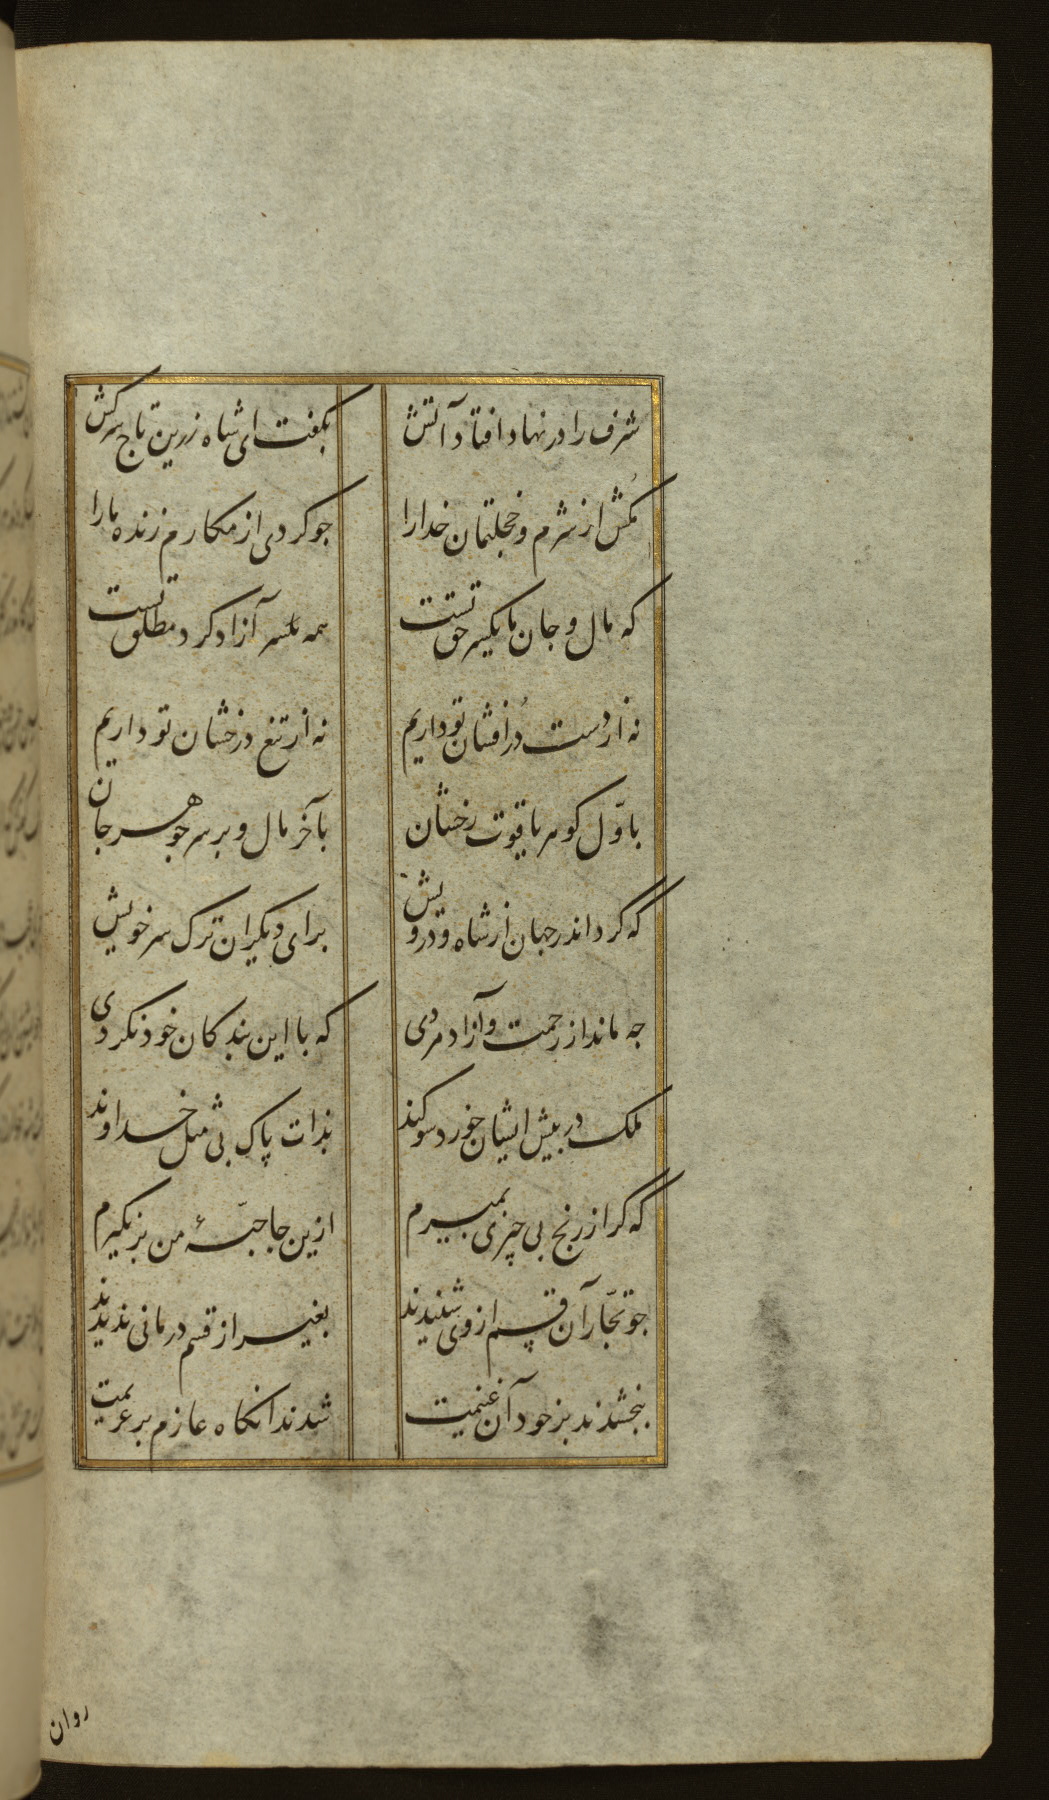 شرف را در نهاد افتاد آتش
بکفت ای شاه زرین تاج سرکش
مکُش از شرم و خجلتمان خدارا
جو کردی از مکارم زنده مارا
که مال و جان ما یکسر حق تست
همه یکسر آزاد کرد مطلق تست
نه از دست دُرافشان تو داریم
نه از تیغ درخشان تو داریم
باوّل کوهر یاقوت رخشان
بآخر مال و بر سر جوهر جان
که کرد اندر جهان از شاه و درویش
برای دیکران ترک سر خویش
جه ماند از رحمت و آزاد مردی
که با این بندکان خود نکردی
ملک در پیش ایشان خورد سوکند
بذات پاک بی مثل خداوند
که کر از رنج بی چیزی بمیرم
ازین جا حبّهٔ من بر نکیرم
جو تجّار آن قسم از وی شنیدند
بغیر از قسم درمانی ندیدند
ببخشیدند بر خود آن غنیمت
شدند انکاه عازم بر عزیمت
روان